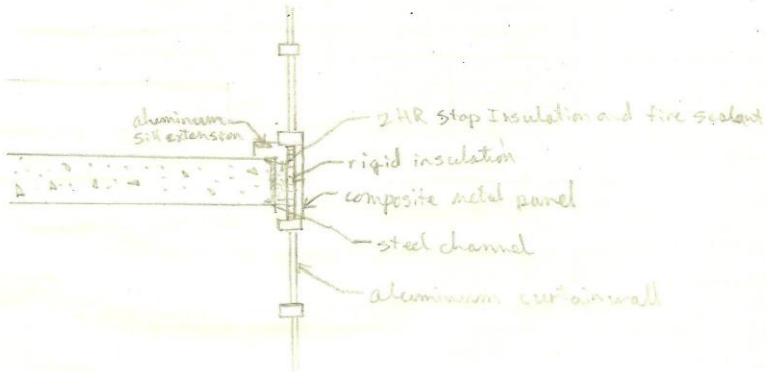 aluminum
sill extension
2HR Stop Insulation and fire sealant
rigid insulation
composite metal panel
steel channel
aluminum curtainwall